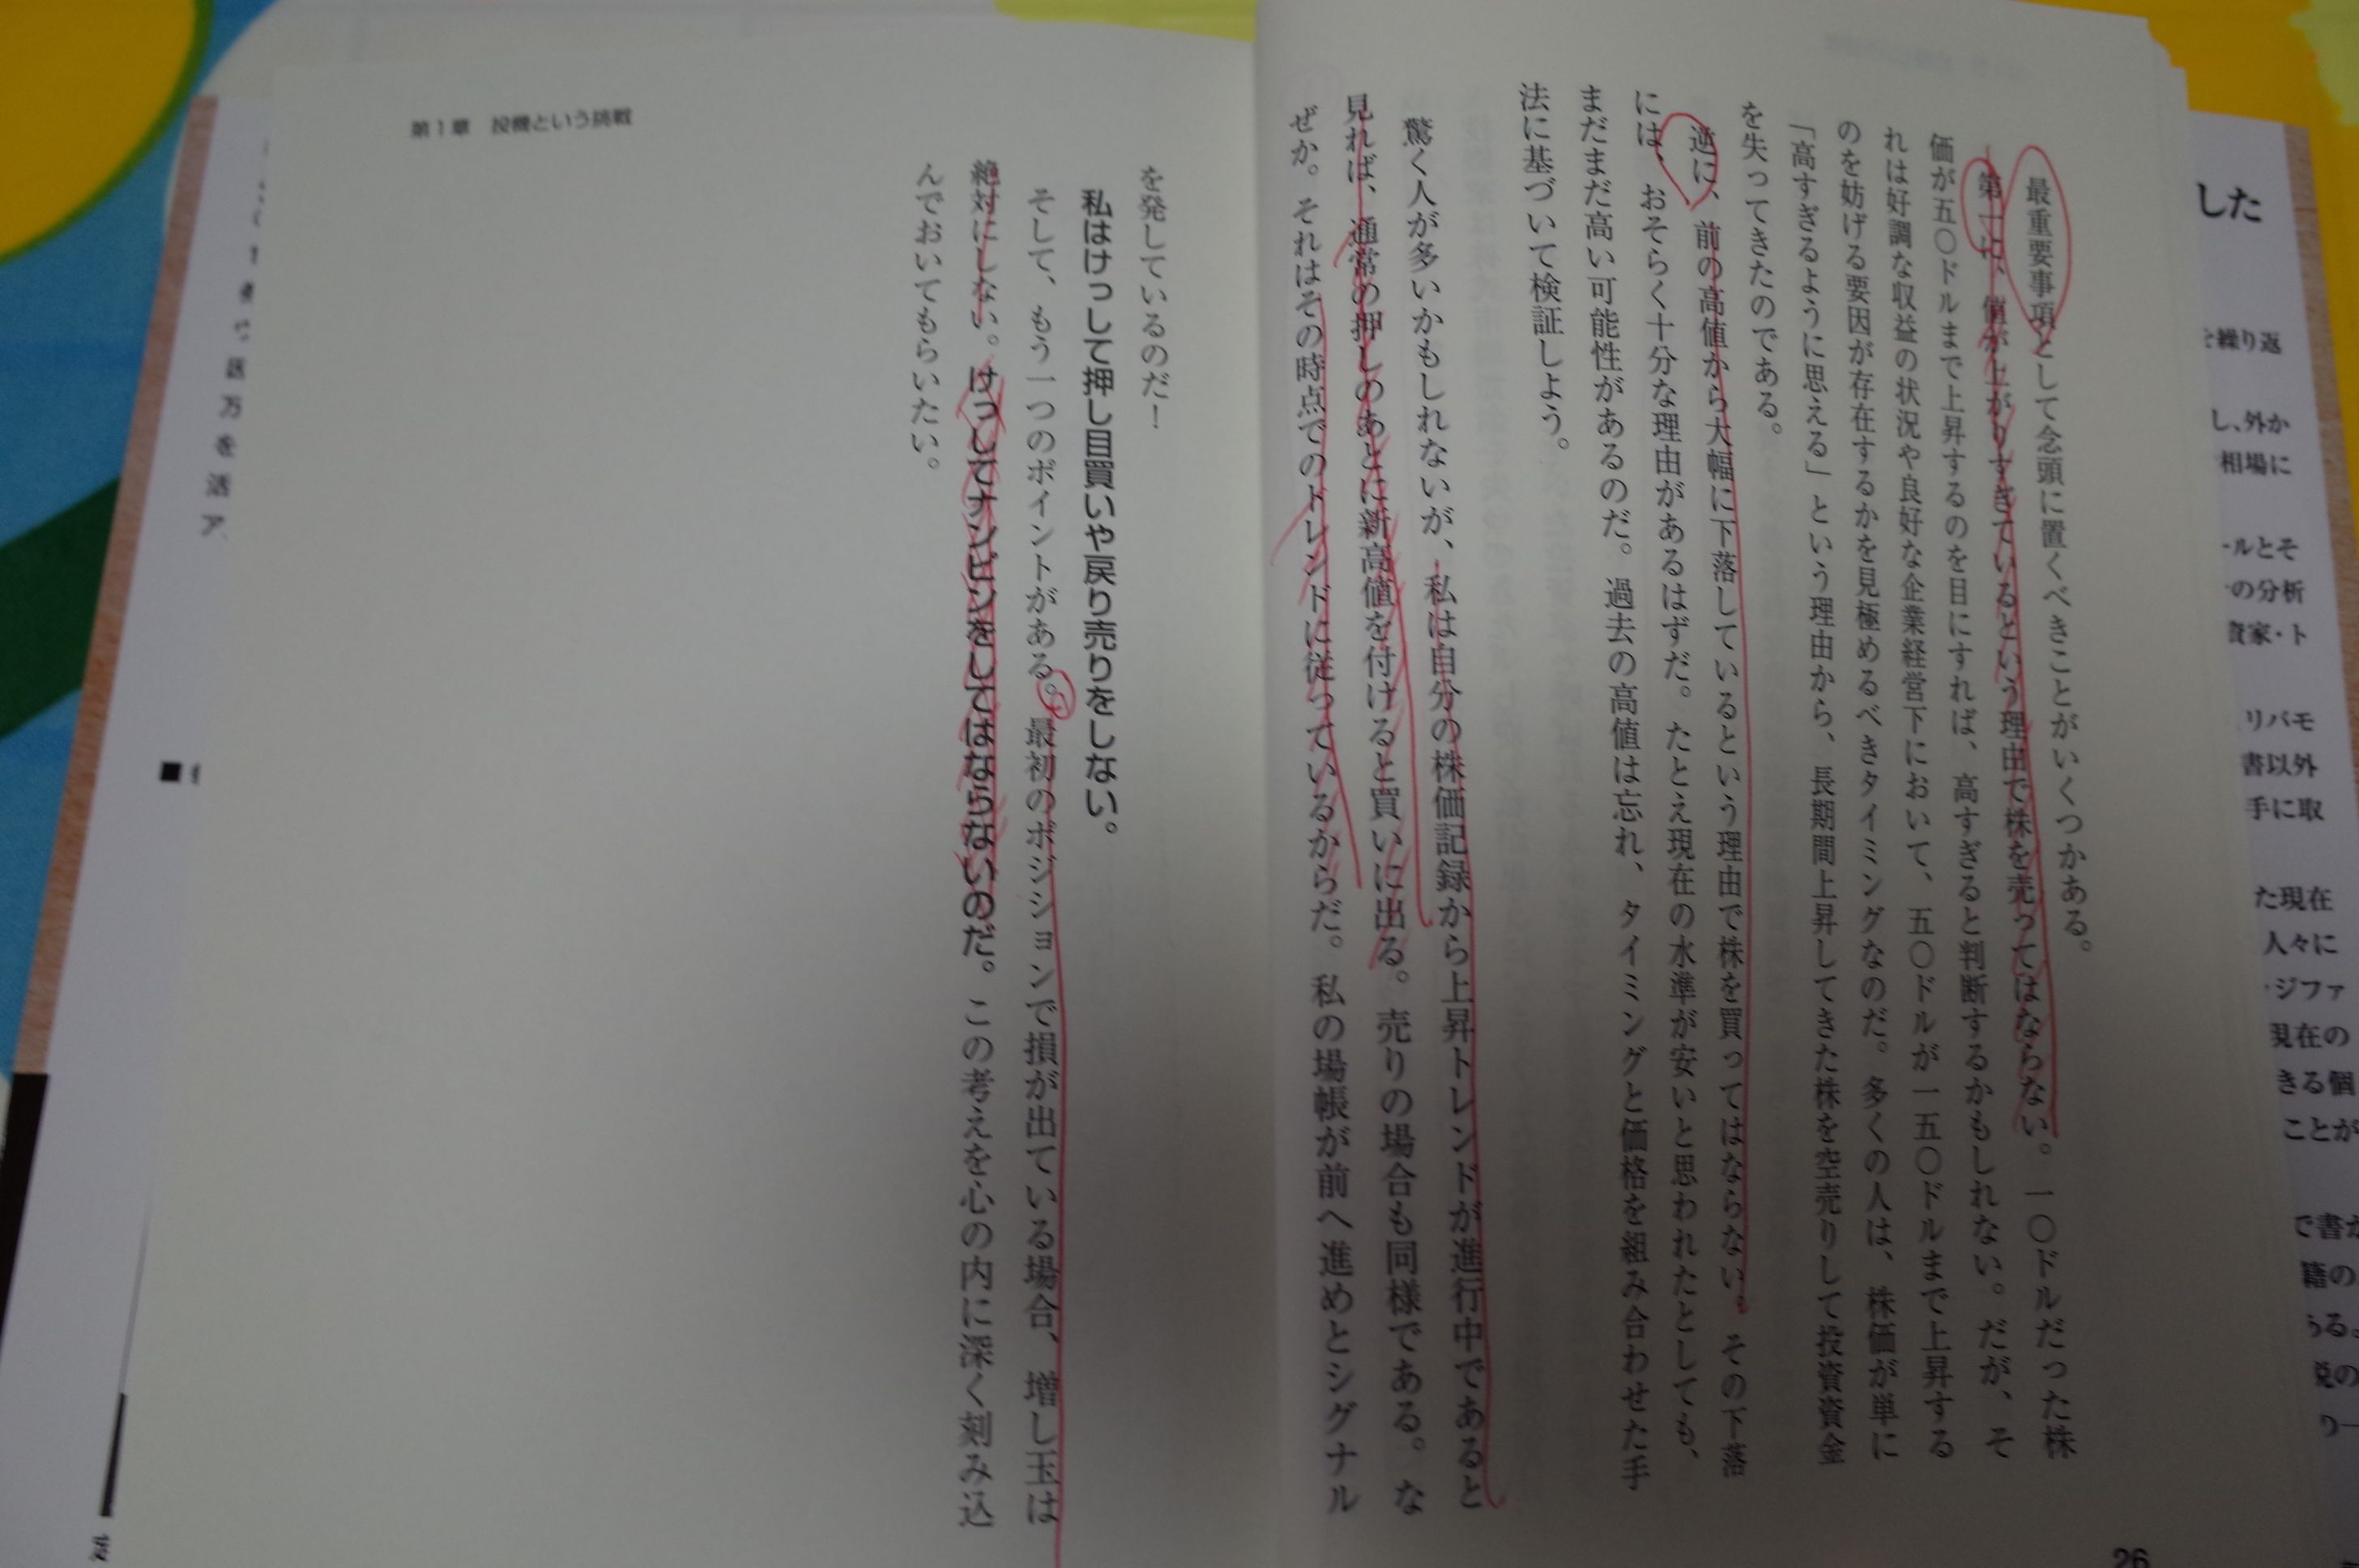 最重要事項として念頭に置くべきことがいくつかある。
第一に、値が上がりすぎているという理由で株を売ってはならない。一〇ドルだった株
価が五〇ドルまで上昇するのを目にすれば、高すぎると判断するかもしれない。だが、そ
れは好調な収益の状況や良好な企業経営下において、五〇ドルが一五〇ドルまで上昇する
のを妨げる要因が存在するかを見極めるべきタイミングなのだ。多くの人は、株価が単に
「高すぎるように思える」という理由から、長期間上昇してきた株を空売りして投資資金
を失ってきたのである。
逆に、前の高値から大幅に下落しているという理由で株を買ってはならない。その下落
には、おそらく十分な理由があるはずだ。たとえ現在の水準が安いと思われたとしても、
まだまだ高い可能性があるのだ。過去の高値は忘れ、タイミングと価格を組み合わせた手
法に基づいて検証しよう。
驚く人が多いかもしれないが、私は自分の株価記録から上昇トレンドが進行中であると
見れば、通常の押しのあとに新高値を付けると買いに出る。売りの場合も同様である。な
ぜか。それはその時点でのトレンドに従っているからだ。私の場帳が前へ進めとシグナル
26
第1章 投機という挑戦
を発しているのだ！
私はけっして押し目買いや戻り売りをしない。
そして、もう一つのポイントがある。最初のポジションで損が出ている場合、増し玉は
絶対にしない。けっしてナンピンをしてはならないのだ。この考えを心の内に深く刻み込
んでおいてもらいたい。
した
を繰り返
し、外か
相場に
ールとそ
の分析
資家・ト
リバモ
書以外
手に取
た現在
人々に
ジファ
現在の
きる個
ことが
で書か
籍の